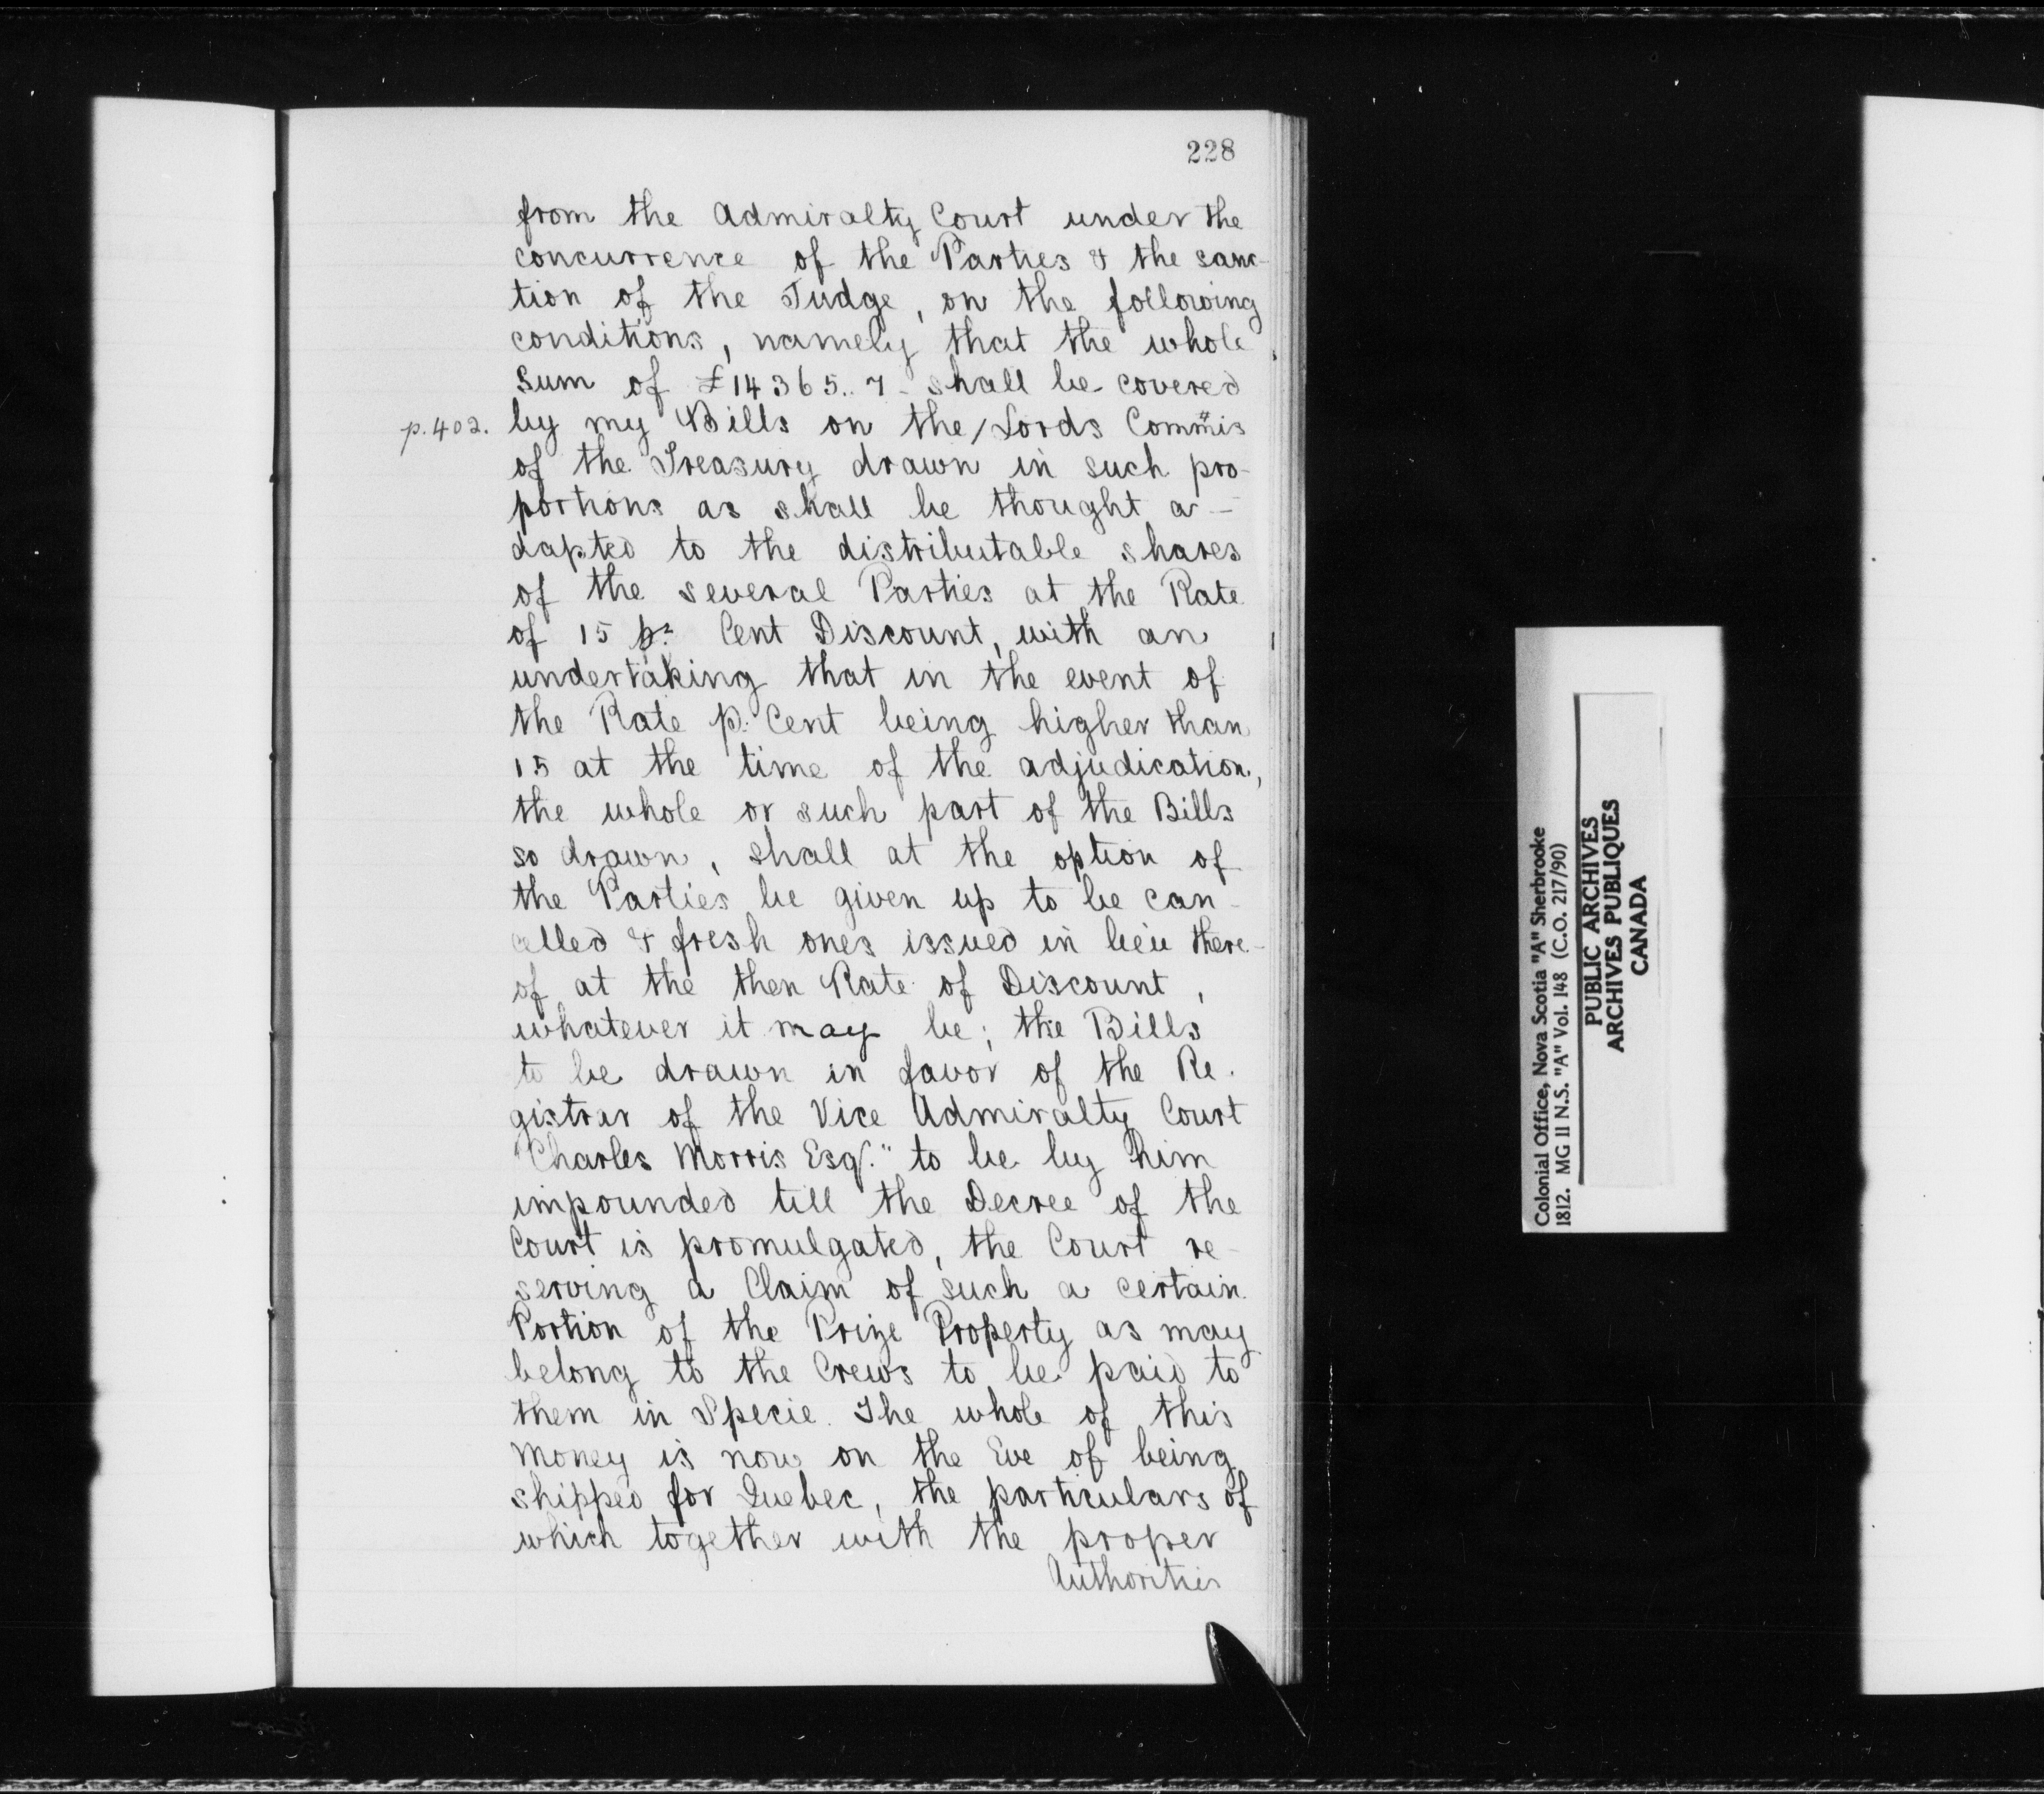 228
from the Admiralty Court under the
concurrence of the Parties & the sanc-
tion of the Judge, on the following
conditions, namely that the whole
sum of £14365..7- shall be covered
p.402. by my Bills on the/Lords Commis
of the Treasury drawn in such pro-
portions as shall be thought a-
dapted to the distributable shares
of the several Parties at the Rate
of 15 pr Cent Discount, with an
undertaking that in the event of
the Rate p. Cent being higher than
15 at the time of the adjudication,
the whole or such part of the Bills
so drawn, shall at the option of
the Parties be given up to be can-
celled & fresh ones issued in lieu there-
of at the then Rate of Discount,
whatever it may be; the Bills
to be drawn in favor of the Re-
gistrar of the Vice Admiralty Court
"Charles Morris Esqr." to be by him
impounded till the Decree of the
Court is promulgated, the Court re-
serving a Claim of such a certain
Portion of the Prize Property as may
belong to the Crews to be paid to
them in Specie. The whole of this
Money is now on the Eve of being
shipped for Quebec, the particulars of
which together with the proper
Authorities
Colonial Office, Nova Scotia "A" Sherbrooke
1812. MG 11 N.S. "A" Vol. 148 (C.O. 217/90)
PUBLIC ARCHIVES
ARCHIVES PUBLIQUES
CANADA